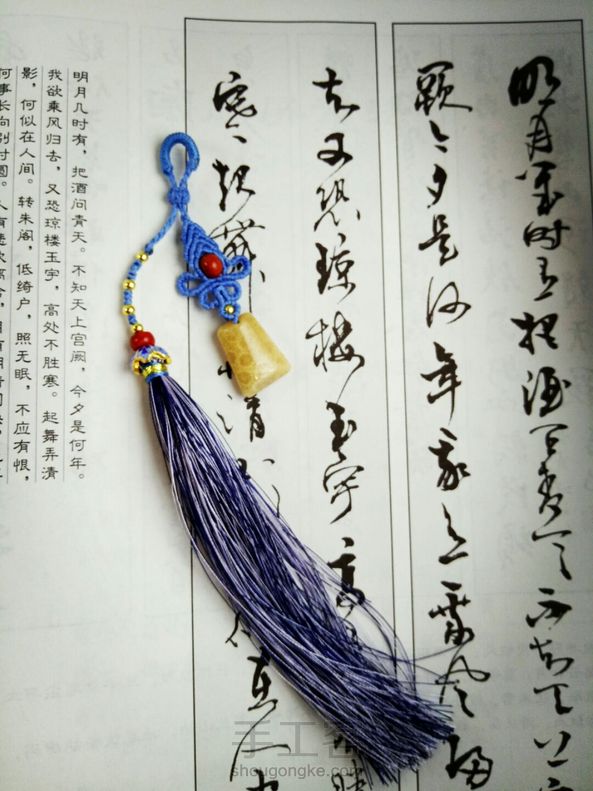 明月幾時有把酒問青天不知天上
闕今夕是何年我欲乘風歸
去又恐瓊樓玉宇高勝
寒起舞清在人
明月几时有，把酒问青天。不知天上宫阙，今夕是何年。
我欲乘风归去，又恐琼楼玉宇，高处不胜寒。起舞弄清
影，何似在人间。转朱阁，低绮户，照无眠。不应有恨，
何事长向别时圆。
手工客
shougongke.com